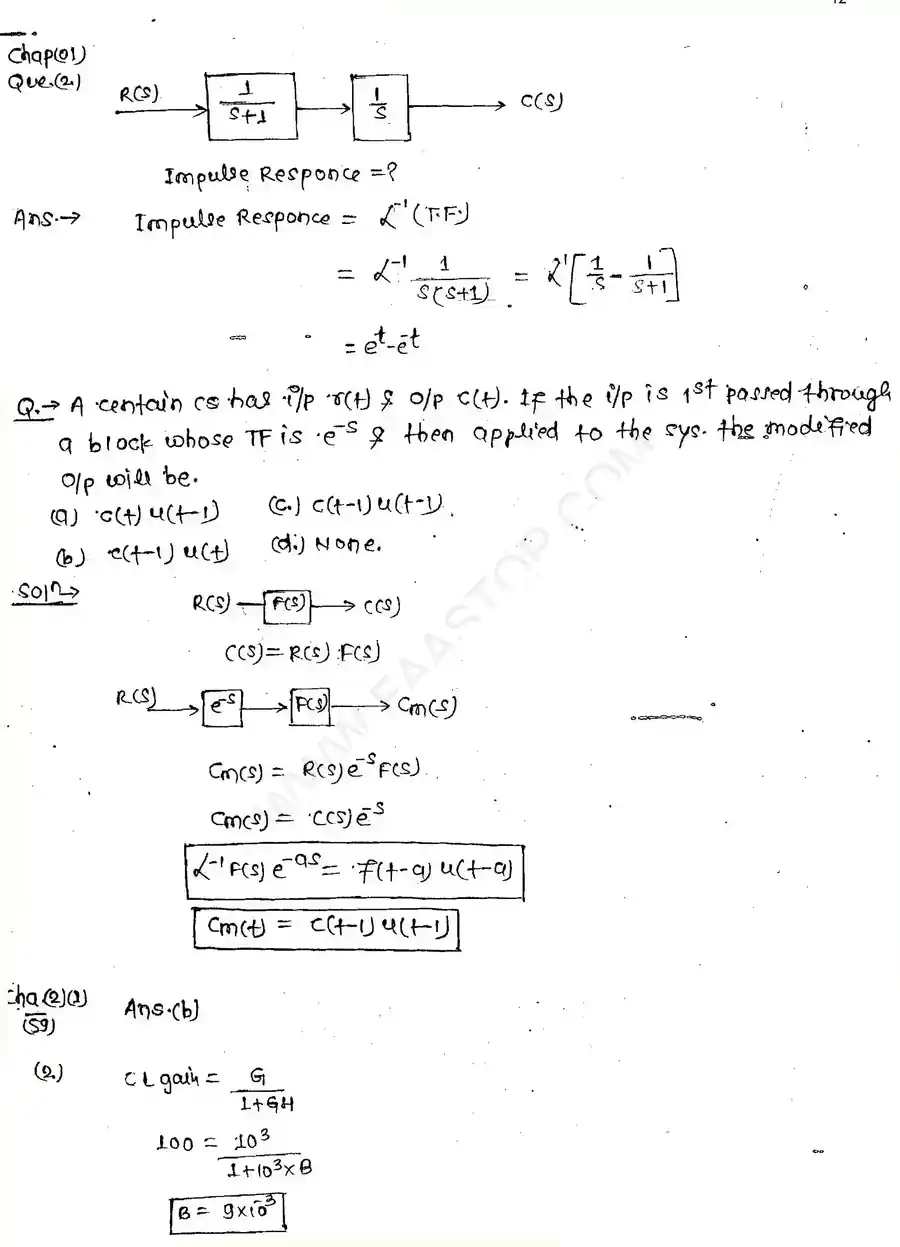 12
Chap(01)
Que.(2.)
R(S) 1/(S+1) 1/S C(S)
Impulse Responce =?
Ans.→ Impulse Responce = ℒ⁻¹(T.F.)
= ℒ⁻¹ 1/(S(S+1)) = ℒ⁻¹[1/S - 1/(S+1)]
= e^t - e^-t
Q.→ A centain cs has i/p r(t) & o/p c(t). If the i/p is 1st passed through
a block whose TF is e^-S & then applied to the sys. the modified
o/p will be.
(a) c(t) u(t-1) (c.) c(t-1) u(t-1).
(b) c(t-1) u(t) (d.) None.
Soln→
R(S) F(S) C(S)
C(S) = R(S) F(S)
R(S) e^-S F(S) Cm(S)
Cm(S) = R(S) e^-S F(S)
Cm(S) = C(S) e^-S
ℒ⁻¹ F(S) e^-as = f(t-a) u(t-a)
Cm(t) = C(t-1) u(t-1)
WWW.EAASTOP.COM
Cha(2)(1) Ans.(b)
(59)
(2.) CL gain = G/(1+GH)
100 = 10^3/(1+10^3×B)
B = 9×10^-3